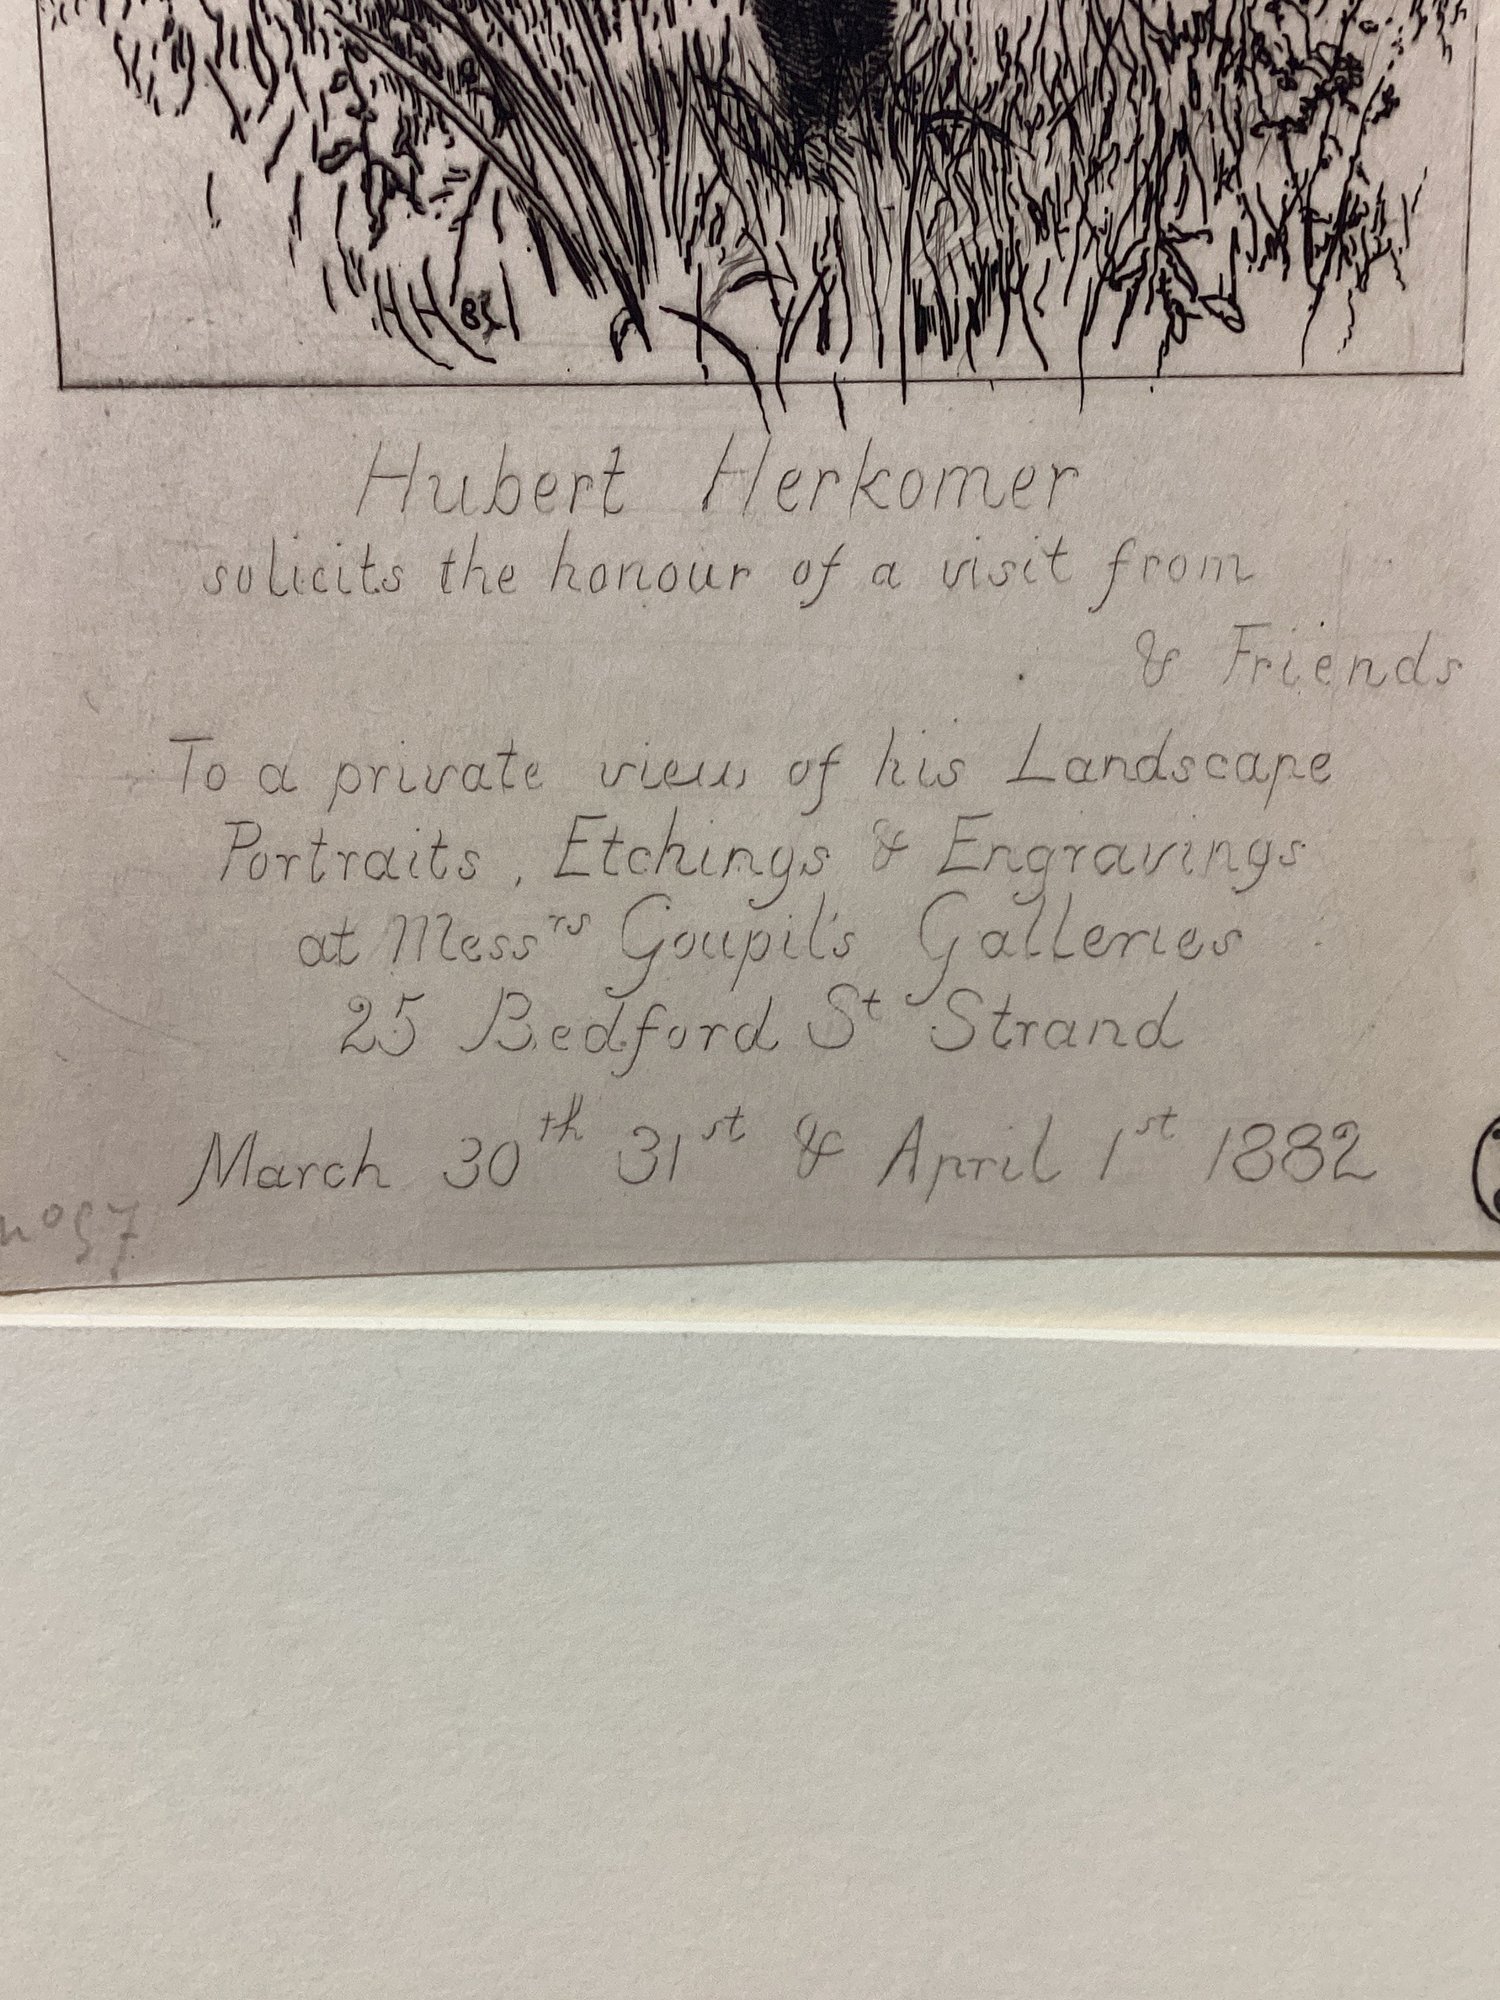 HH 82
Hubert Herkomer
solicits the honour of a visit from
& Friends
To a private view of his Landscape
Portraits, Etchings & Engravings
at Messrs Goupil's Galleries
25 Bedford St Strand
March 30th 31st & April 1st 1882
no 57